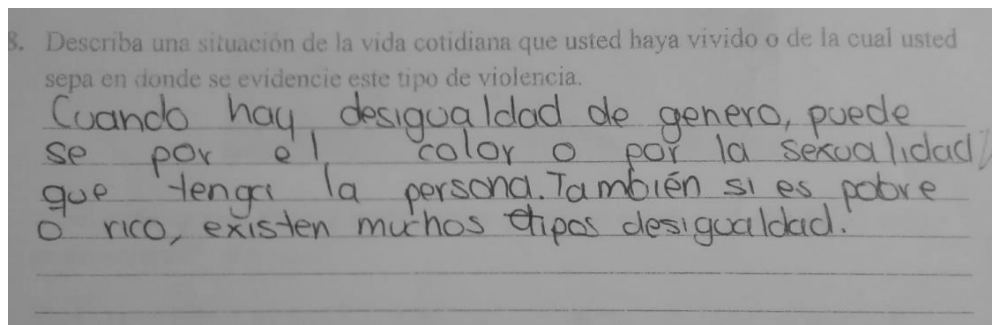 8. Describa una situación de la vida cotidiana que usted haya vivido o de la cual usted
sepa en donde se evidencie este tipo de violencia.
Cuando hay desigualdad de genero, puede
se por el color o por la sexualidad
que tenga la persona. También si es pobre
o rico, existen muchos tipos desigualdad.